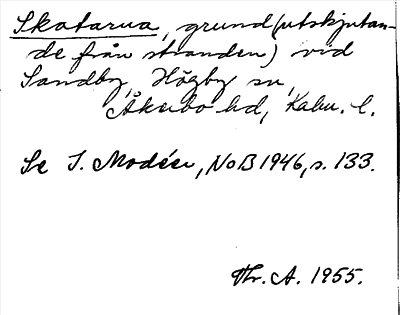 Skatarna, grund (utskjutan-
de från stranden) vid
Sandby, Högby sn,
Åkerbo hd, Kalm. l.
Se I. Modéer, NoB 1946, s. 133.
Thr. A. 1955.